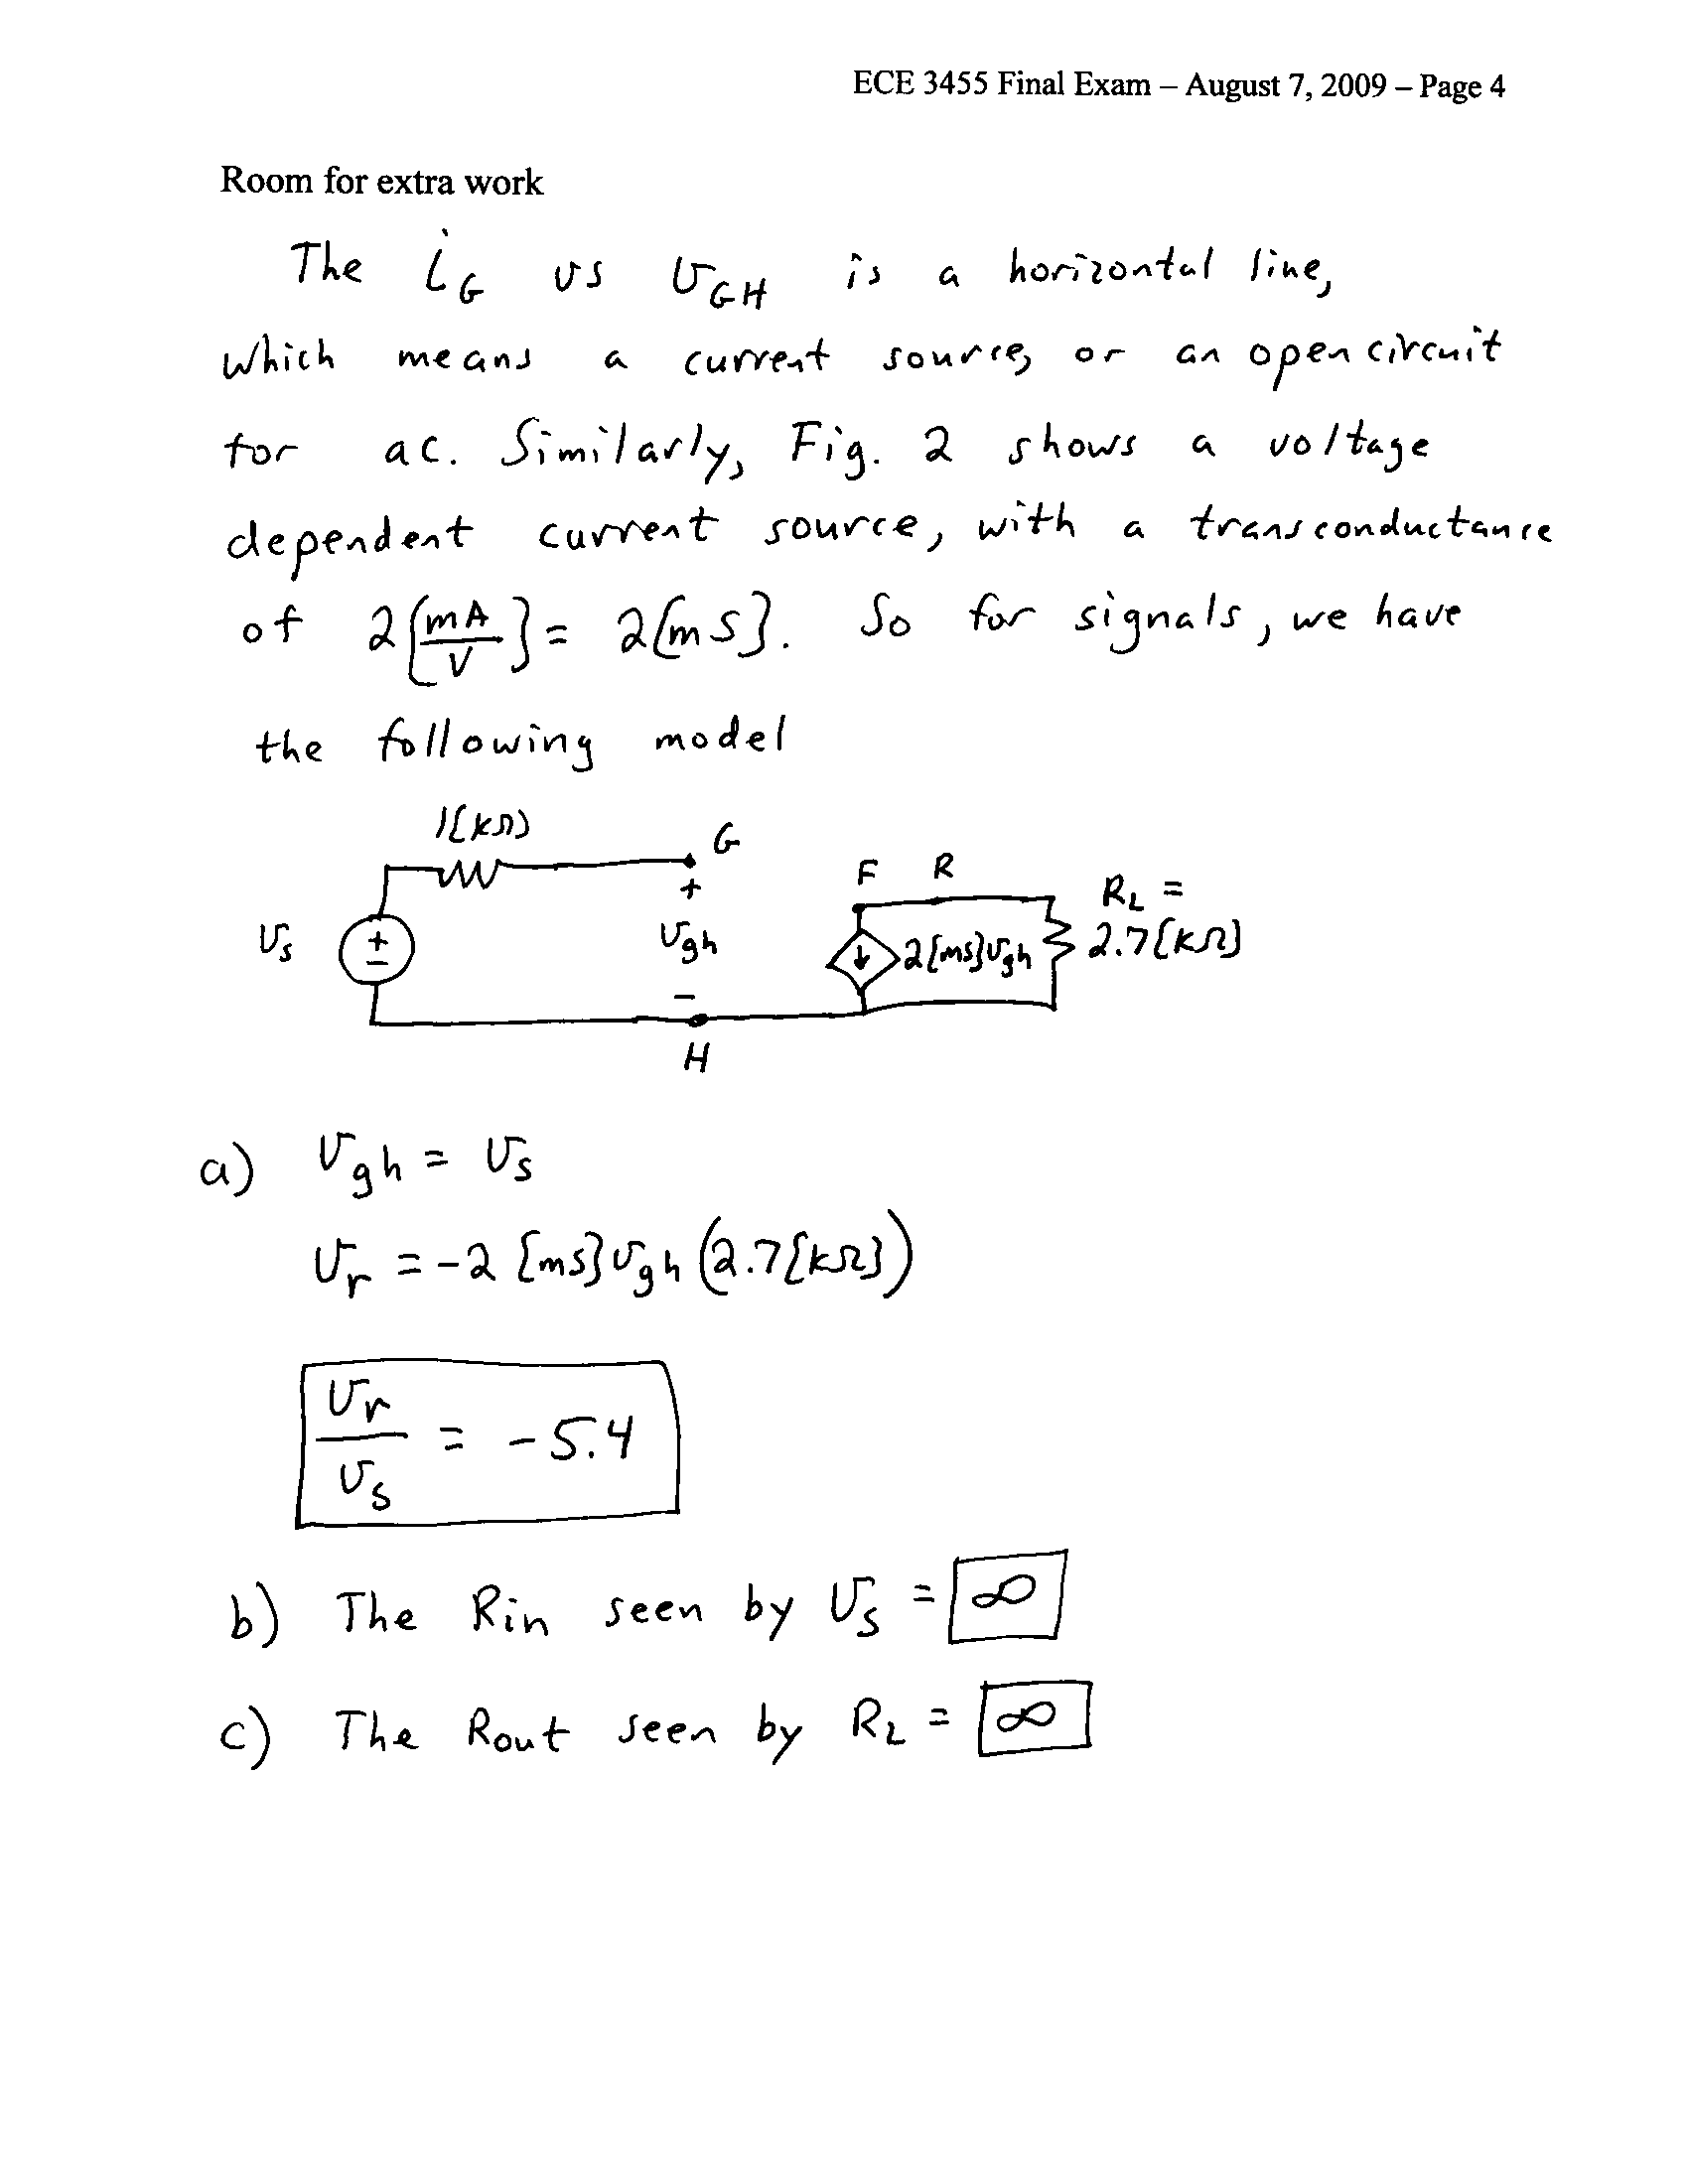 ECE 3455 Final Exam – August 7, 2009 – Page 4
Room for extra work
The iG vs vGH is a horizontal line,
which means a current source, or an open circuit
for ac. Similarly, Fig. 2 shows a voltage
dependent current source, with a transconductance
of 2[mA/V] = 2[mS]. So for signals, we have
the following model
1[kΩ]
G
F R
RL =
2.7[kΩ]
vs
+
-
+
vgh
-
2[mS]vgh
H
a) vgh = vs
vr = -2 [mS]vgh (2.7[kΩ])
vr/vs = -5.4
b) The Rin seen by vs = ∞
c) The Rout seen by RL = ∞